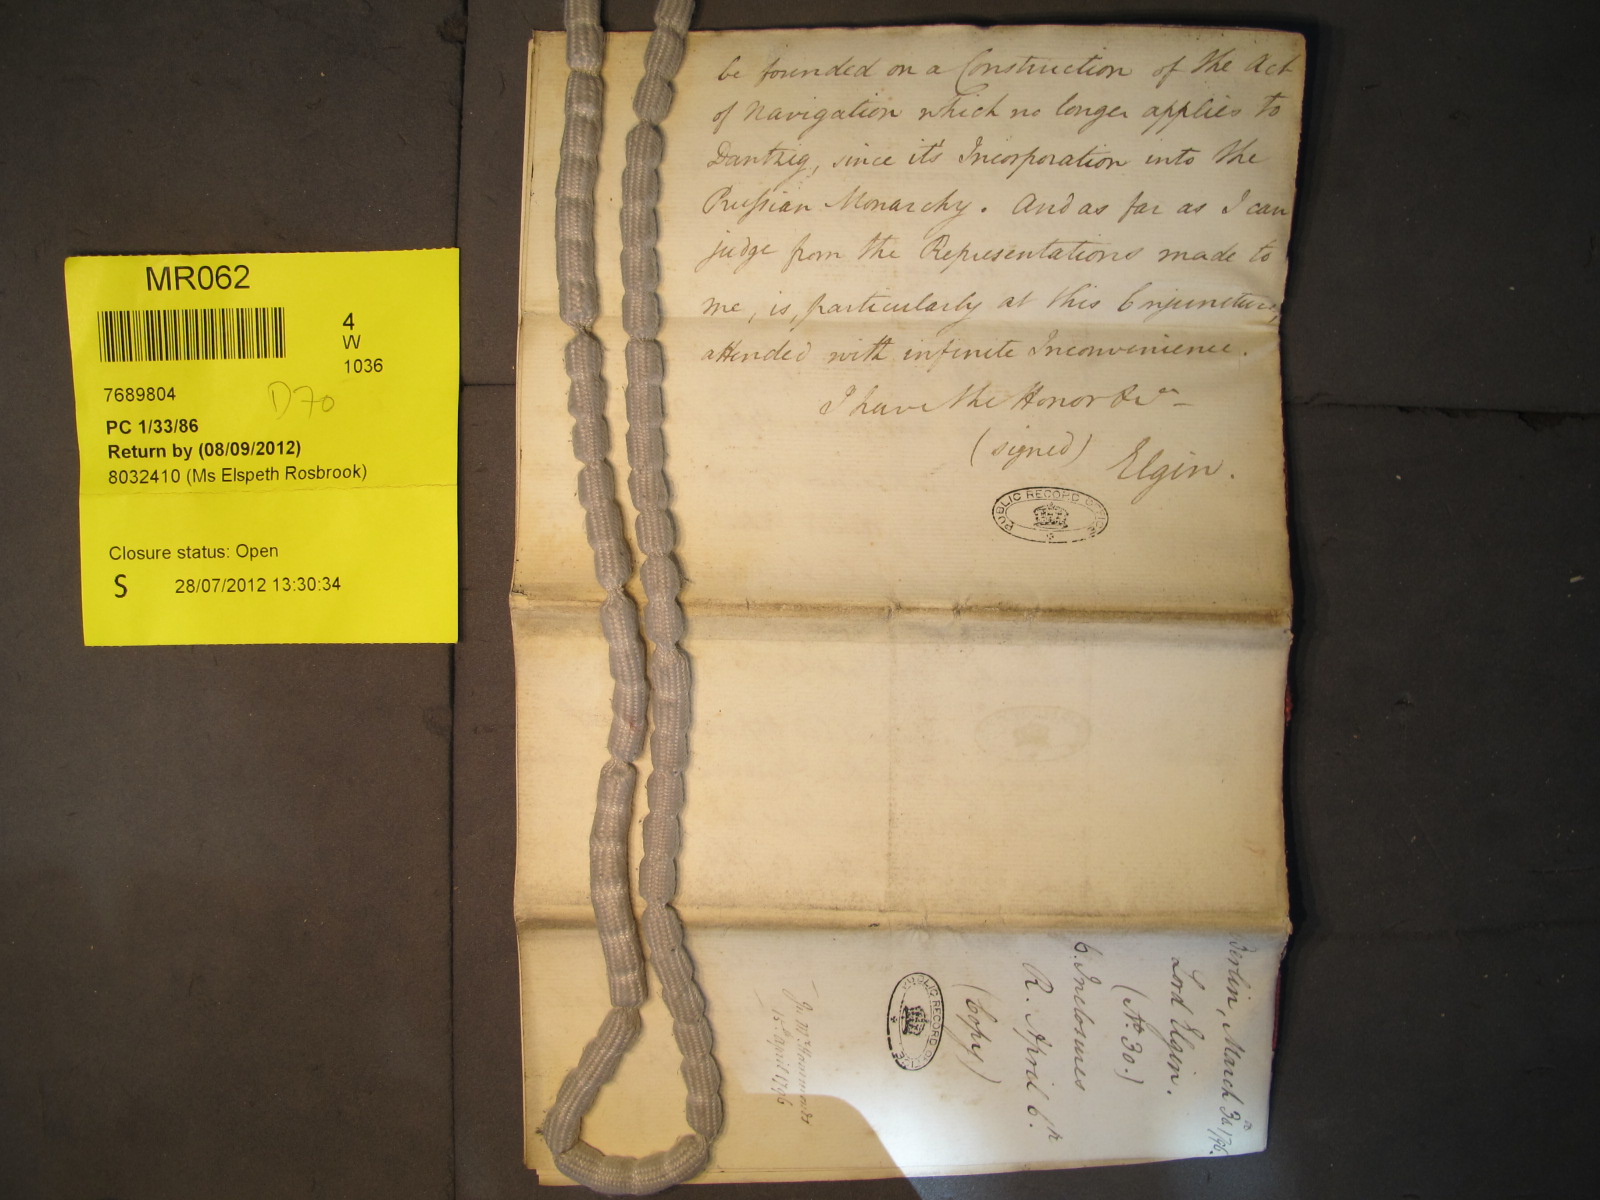 MR062
4
W
1036
7689804
D70
PC 1/33/86
Return by (08/09/2012)
8032410 (Ms Elspeth Rosbrook)
Closure status: Open
S 28/07/2012 13:30:34
be founded on a Construction of the Act
of Navigation which no longer applies to
Dantzig, since it's Incorporation into the
Prussian Monarchy. And as far as I can
judge from the Representations made to
me, is, particularly at this Conjuncture,
attended with infinite Inconvenience.
I have the Honor &ca
(signed) Elgin.
PUBLIC RECORD OFFICE
Berlin, March 3d 1796.
Lord Elgin.
(No. 30.)
6. Inclosures
R. April 6th
(Copy)
PUBLIC RECORD OFFICE
In Mr Hammond's
15 April 1796